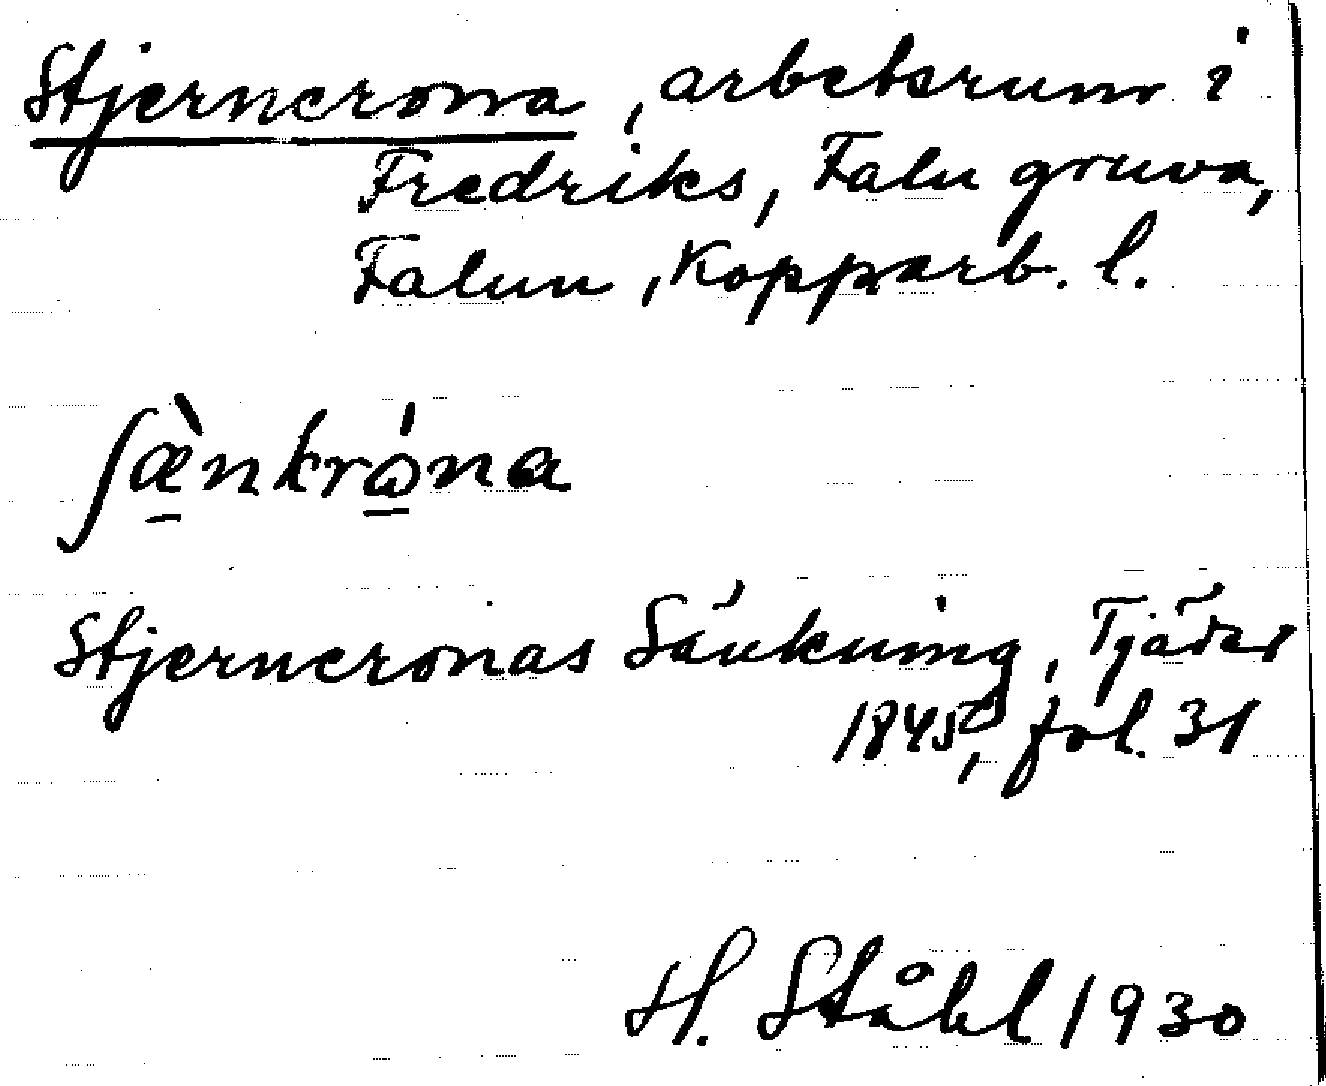 Stjerncrona, arbetsrum i
Fredriks, Falu gruva,
Falun, Kopparb. l.
ʃæ̀nkrána
Stjerncronas Sänkning, Tjäder
1845, fol. 31
H. Ståhl 1930